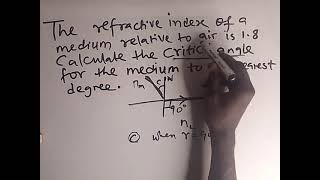 The refractive index of a
medium relative to air is 1.8
Calculate the Critic angle
for the medium to nearest
degree.
n₁ C N
90°
n₂
© when r = 90